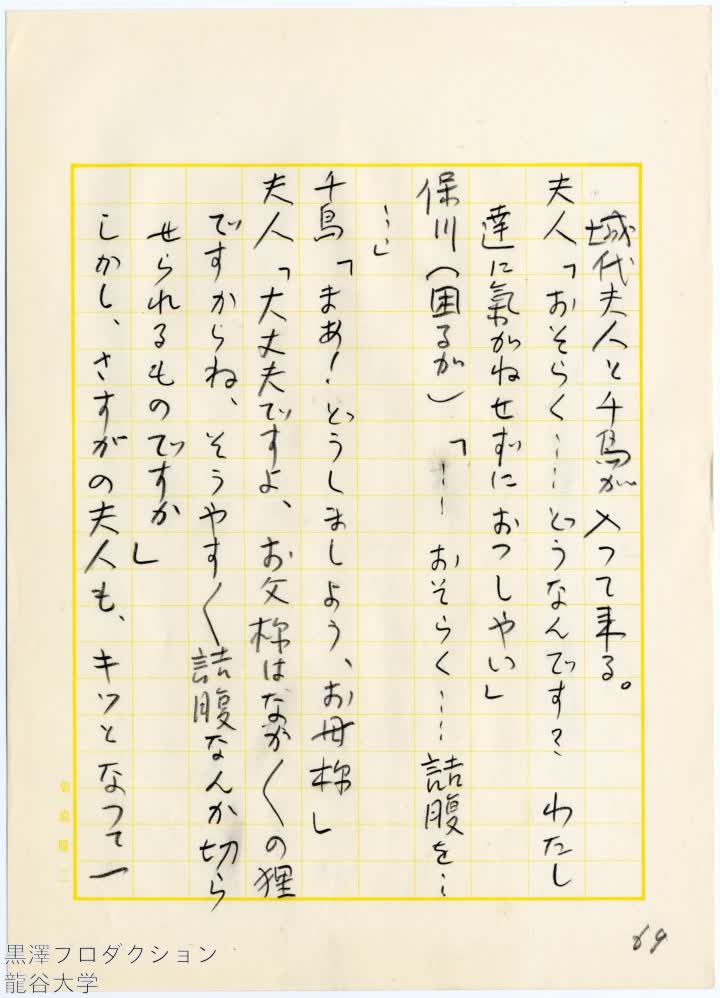 城代夫人と千鳥が入つて来る。
夫人「おそらく……どうなんです？　わたし
達に氣がねせずにおつしやい」
保川（困るが）「……おそらく……詰腹を…
…」
千鳥「まあ！どうしましよう、お母様」
夫人「大丈夫ですよ、お父様はなか〱の狸
ですからね、そうやす〱詰腹なんか切ら
せられるものですか」
しかし、さすがの夫人も、キツとなつて一
69
黒澤プロダクション
龍谷大学